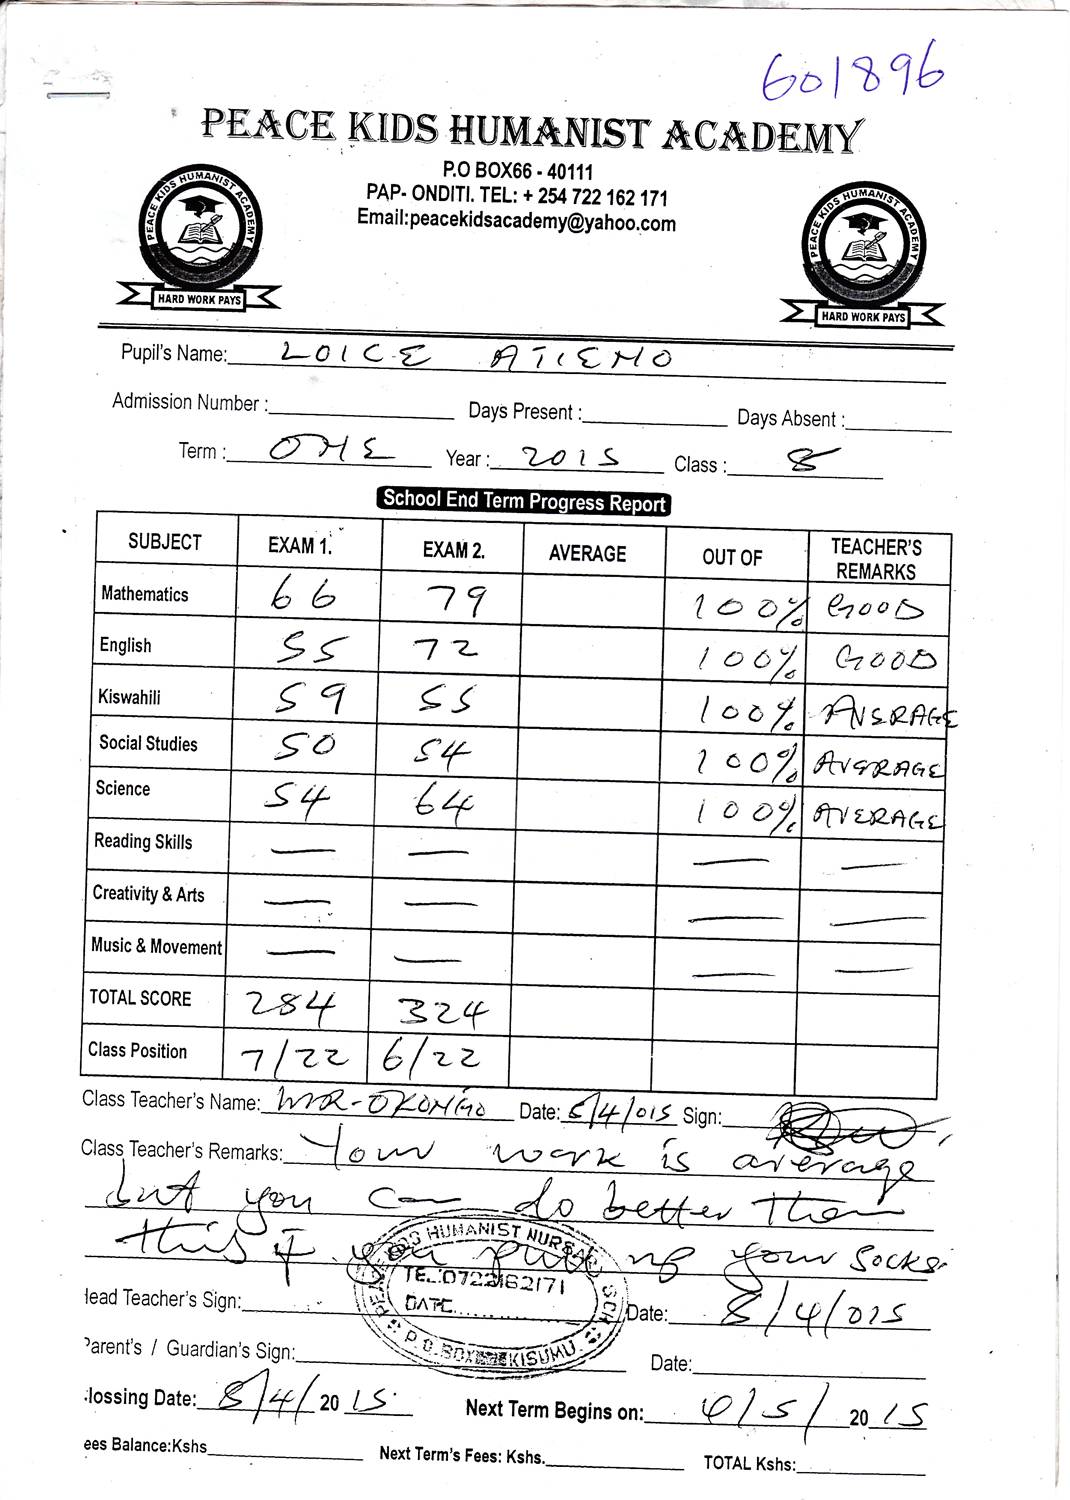 601896
PEACE KIDS HUMANIST ACADEMY
P.O BOX66 - 40111
PAP- ONDITI. TEL: + 254 722 162 171
Email:peacekidsacademy@yahoo.com
PEACE KIDS HUMANIST ACADEMY
HARD WORK PAYS
PEACE KIDS HUMANIST ACADEMY
HARD WORK PAYS
Pupil's Name: LOICE ATIENO
Admission Number : Days Present : Days Absent :
Term : ONE Year : 2015 Class : 8
School End Term Progress Report
SUBJECT EXAM 1. EXAM 2. AVERAGE OUT OF TEACHER'S REMARKS
Mathematics 66 79 100% GOOD
English 55 72 100% GOOD
Kiswahili 59 55 100% AVERAGE
Social Studies 50 54 100% AVERAGE
Science 54 64 100% AVERAGE
Reading Skills — — — —
Creativity & Arts — — — —
Music & Movement — — — —
TOTAL SCORE 284 324
Class Position 7/22 6/22
Class Teacher's Name: MR-OKONGO Date: 8/4/015 Sign:
Class Teacher's Remarks: Your work is average
but you can do better than
this if you pull up your socks.
HUMANIST NURSARY SCH
TEL:0722162171
DATE
P.O.BOX KISUMU
Head Teacher's Sign: Date: 8/4/015
Parent's / Guardian's Sign: Date:
lossing Date: 8/4/2015 Next Term Begins on: 4/5/2015
ees Balance:Kshs Next Term's Fees: Kshs. TOTAL Kshs: